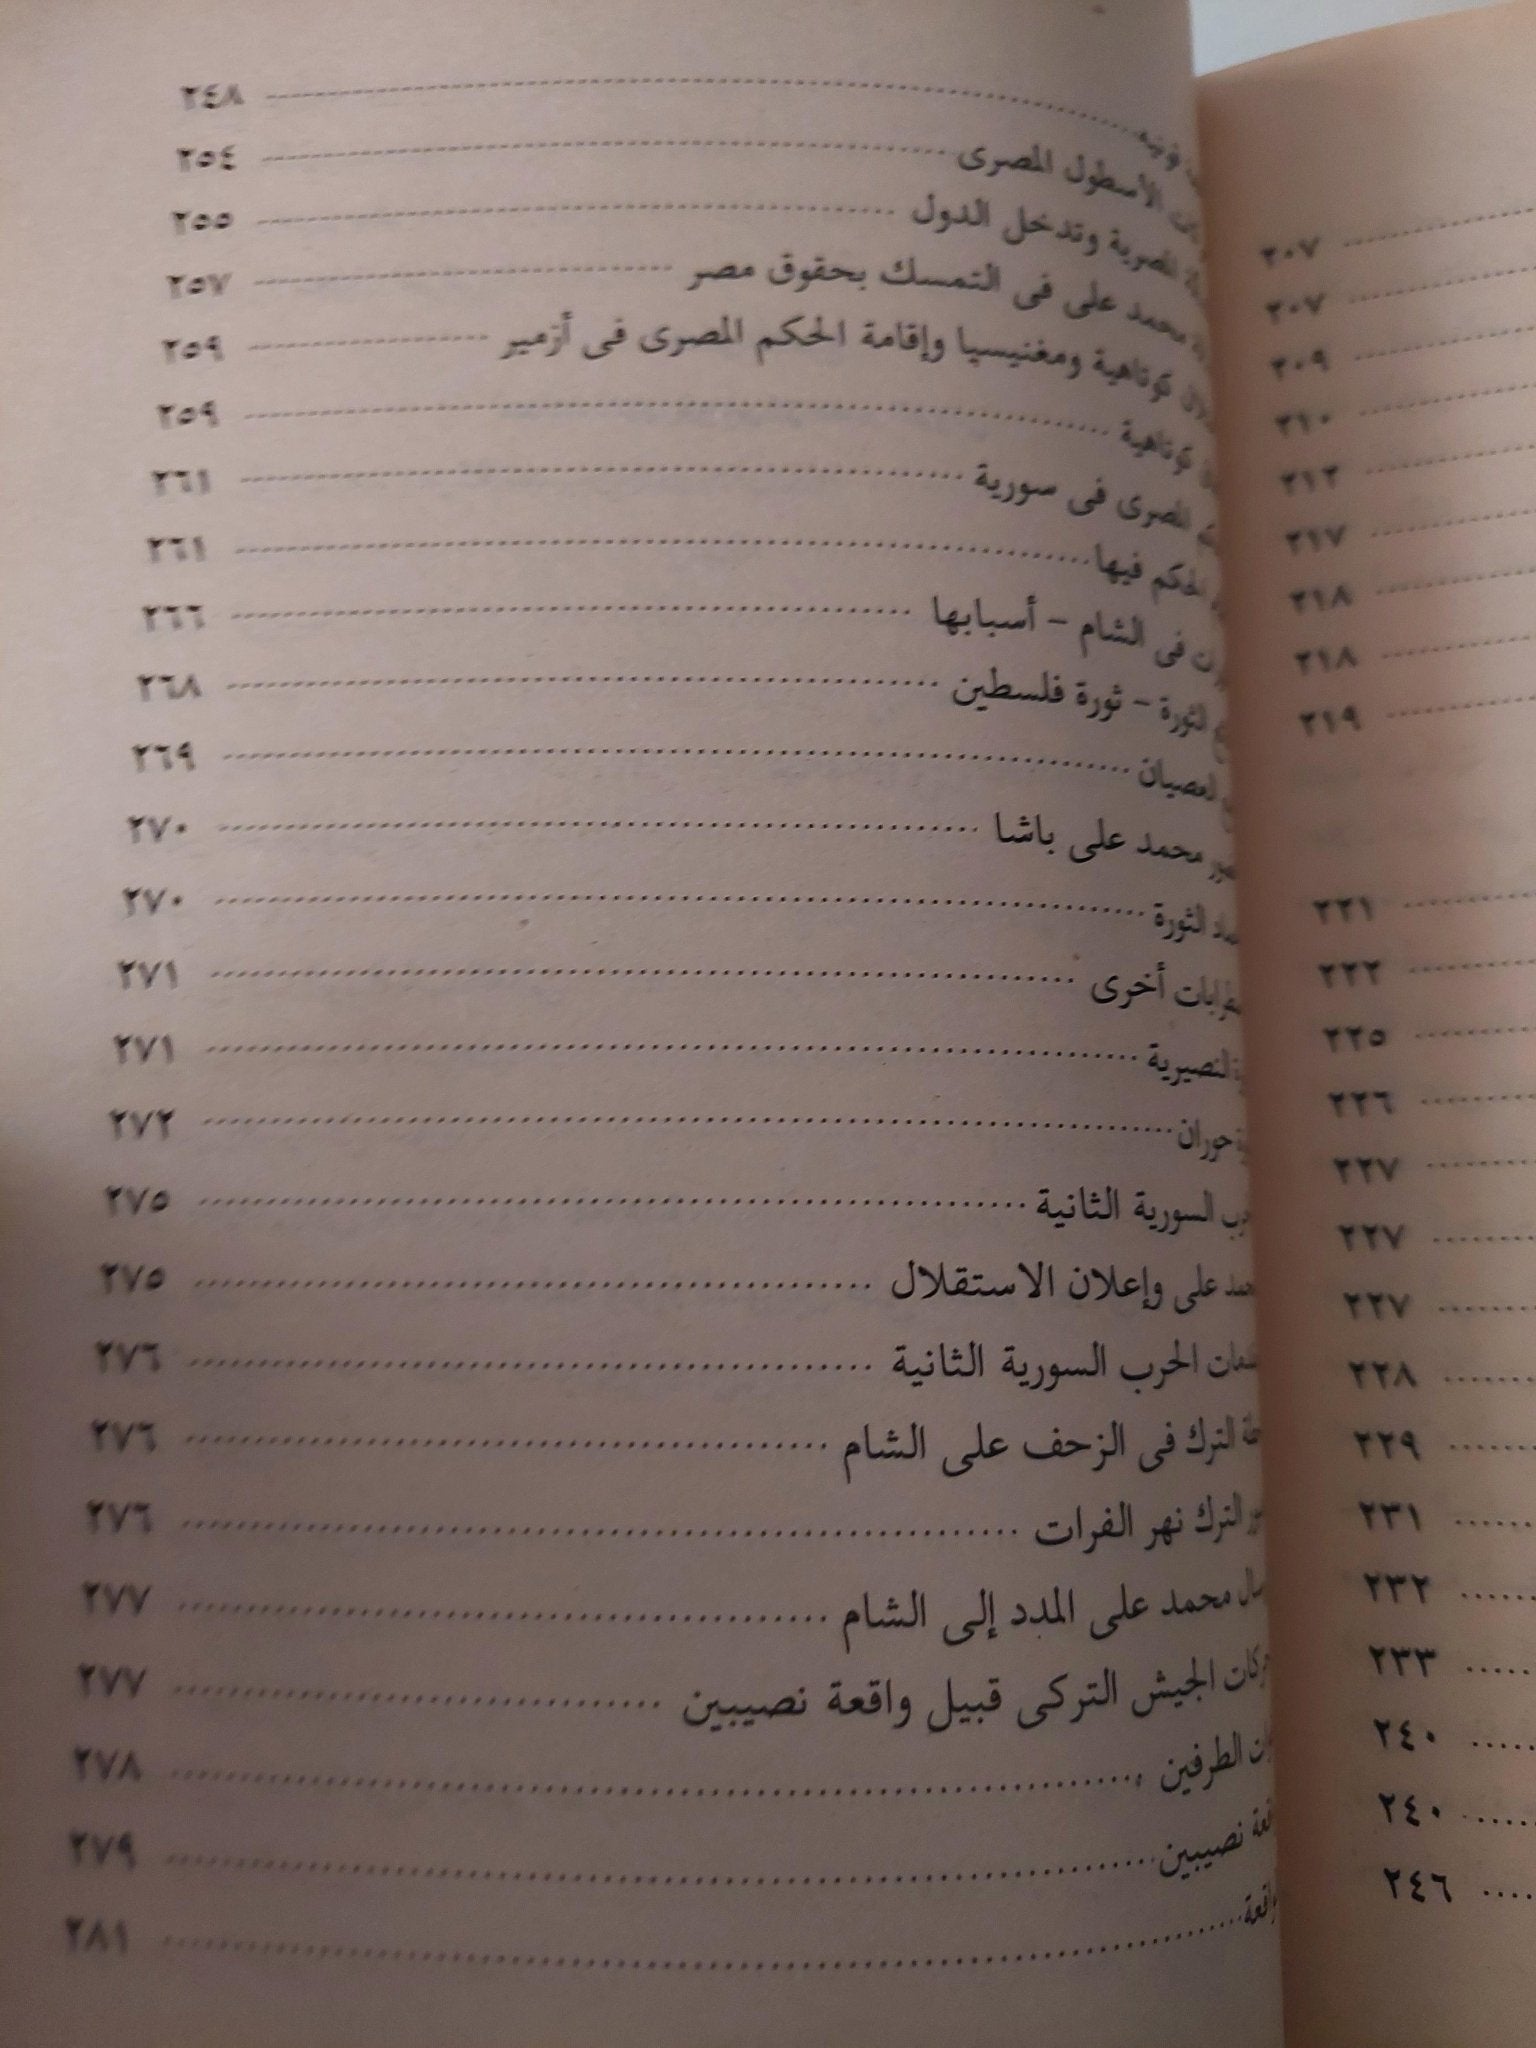 ٢٠٧
٢٠٧
٢٠٩
٢١٠
٢١٢
٢١٧
٢١٨
٢١٨
٢١٩
٢٢١
٢٢٢
٢٢٥
٢٢٦
٢٢٧
٢٢٧
٢٢٧
٢٢٨
٢٢٩
٢٣١
٢٣٢
٢٣٣
٢٤٠
٢٤٠
٢٤٦
٢٤٨
الأسطول المصرى ٢٥٤
المصرية وتدخل الدول ٢٥٥
محمد على فى التمسك بحقوق مصر ٢٥٧
كوتاهية ومغنيسيا وإقامة الحكم المصرى فى أزمير ٢٥٩
كوتاهية ٢٥٩
المصرى فى سورية ٢٦١
الحكم فيها ٢٦١
فى الشام - أسبابها ٢٦٦
الثورة - ثورة فلسطين ٢٦٨
العصيان ٢٦٩
محمد على باشا ٢٧٠
الثورة ٢٧٠
أخرى ٢٧١
النصيرية ٢٧١
حوران ٢٧٢
السورية الثانية ٢٧٥
على وإعلان الاستقلال ٢٧٥
الحرب السورية الثانية ٢٧٦
الترك فى الزحف على الشام ٢٧٦
الترك نهر الفرات ٢٧٦
محمد على المدد إلى الشام ٢٧٧
الجيش التركى قبيل واقعة نصيبين ٢٧٧
الطرفين ٢٧٨
نصيبين ٢٧٩
٢٨١